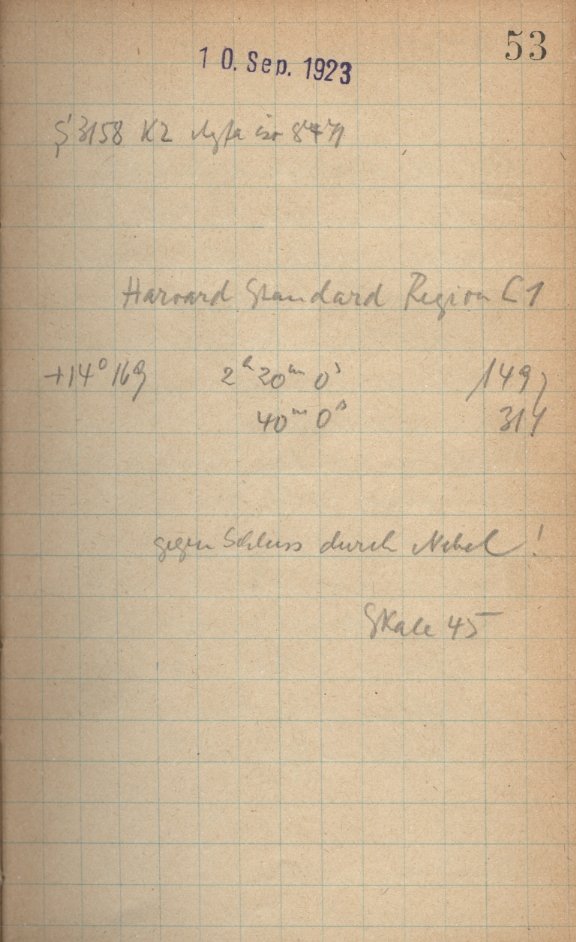 53
10. Sep. 1923
S 3158 K2 Agfa iso 8471
Harvard Standard Region C1
+14° 169 2h 20m 0s 149
40m 0s 314
gegen Schluss durch Nebel!
Skale 45